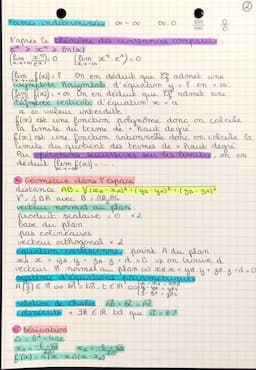 ②
Formes indéterminées ∞ - ∞ ∞ · 0 ∞/∞ 0/0
D'après le théorème des croissances comparées
e^x > x^n > ln(x)
lim f(x) = l On en déduit que Cf admet une
asymptote horizontale d'équation y = l en + ∞
lim f(x) = + ∞ On en déduit que Cf admet une
asymptote verticale d'équation x = a
a = valeur interdite
f(x) est une fonction polynôme donc on calcule
la limite du terme de + haut degré
f(x) est une fonction rationnelle donc on calcule la
limite du quotient des termes de + haut degré
Par opérations successives sur les limites, on en
déduit lim f(x) = ...
Géométrie dans l'espace
distance AB = √(xB - xA)² + (yB - yA)² + (zB - zA)²
vecteur normal au plan
produit scalaire = 0 × 2
base du plan
pas colinéaires
vecteur orthogonal × 2
équation cartésienne, point A du plan
+ d = 0 ⇒ on trouve d
vecteur normal au plan
équations paramétriques
relation de Chasles AB + BC = AC
colinéaires
Dérivation
Δ = b² - 4ac